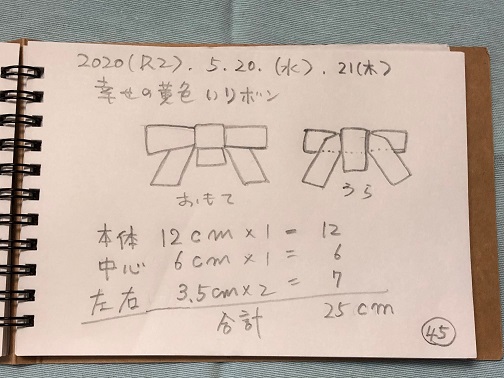 2020(R2). 5.20.(水). 21(木)
幸せの黄色いリボン
おもて うら
本体 12cm×1= 12
中心 6cm×1= 6
左右 3.5cm×2= 7
合計 25cm
45